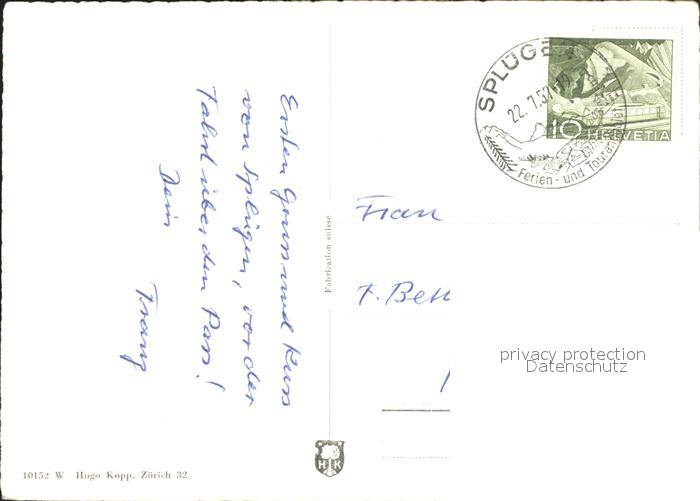 Ersten Gruss und Kuss
von Splügen, vor der
Fahrt über den Pass!
Dein
Franz
Fabrication suisse
SPLÜGEN
22. 7. 5
Ferien- und Touren
10 HELVETIA
Frau
F. Bett
privacy protection
Datenschutz
H K
10152 W Hugo Kopp, Zürich 32